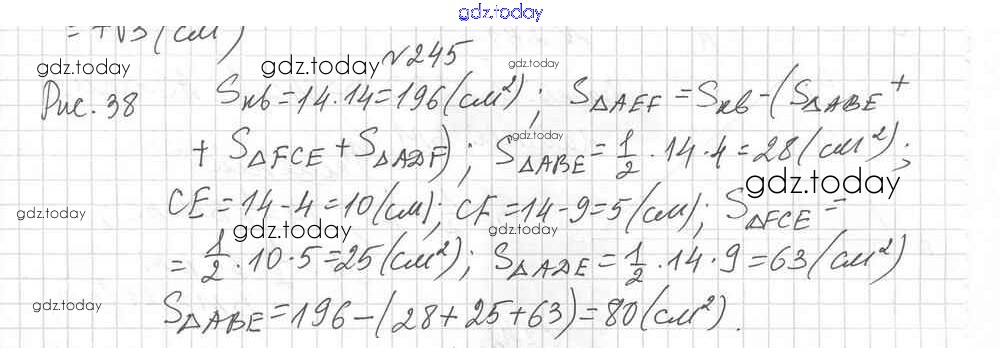 gdz.today
= +√3 (см)
gdz.today
gdz.today
№245
Рис. 38 Sкв = 14·14 = 196 (см²); S△AEF = Sкв - (S△ABE +
gdz.today
+ S△FCE + S△ADF); S△ABE = 1/2 · 14 · 4 = 28 (см²);
gdz.today
CE = 14 - 4 = 10 (см); CF = 14 - 9 = 5 (см); S△FCE =
gdz.today
gdz.today
gdz.today
= 1/2 · 10 · 5 = 25 (см²); S△ADE = 1/2 · 14 · 9 = 63 (см²)
gdz.today
gdz.today
S△ABE = 196 - (28 + 25 + 63) = 80 (см²).